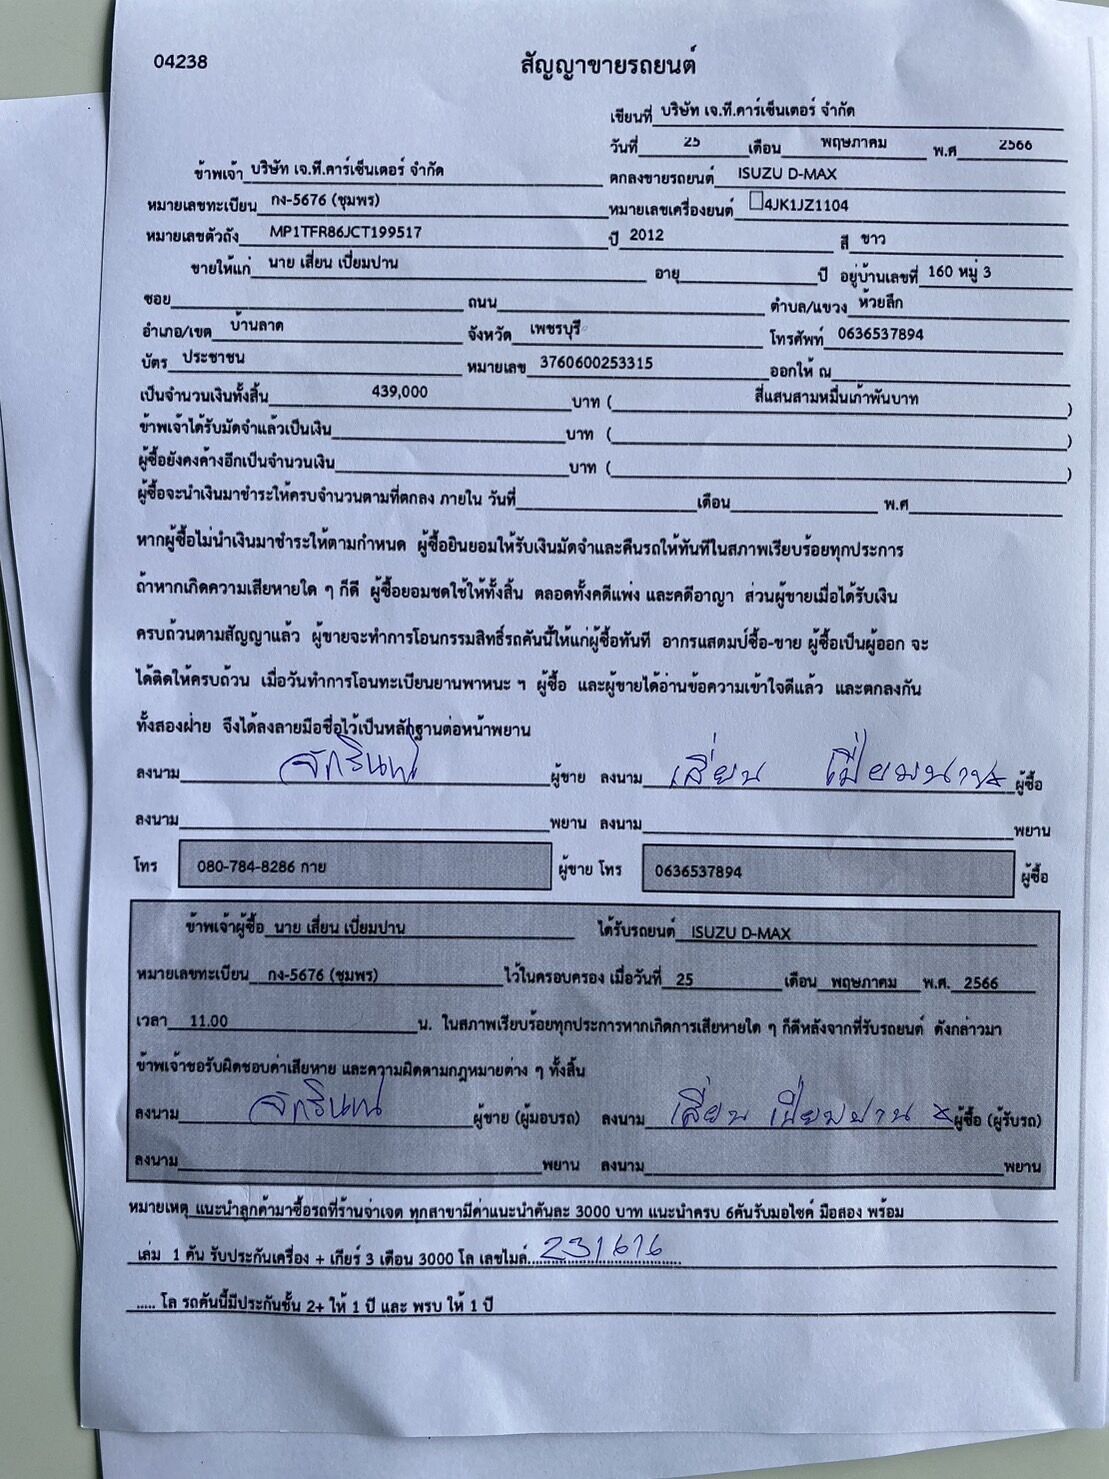 04238
สัญญาขายรถยนต์
เขียนที่ บริษัท เจ.ที.คาร์เซ็นเตอร์ จำกัด
วันที่ 25 เดือน พฤษภาคม พ.ศ 2566
ข้าพเจ้า บริษัท เจ.ที.คาร์เซ็นเตอร์ จำกัด ตกลงขายรถยนต์ ISUZU D-MAX
หมายเลขทะเบียน กง-5676 (ชุมพร) หมายเลขเครื่องยนต์ 4JK1JZ1104
หมายเลขตัวถัง MP1TFR86JCT199517 ปี 2012 สี ขาว
ขายให้แก่ นาย เสี่ยน เปี่ยมปาน อายุ ปี อยู่บ้านเลขที่ 160 หมู่ 3
ซอย ถนน ตำบล/แขวง ห้วยลึก
อำเภอ/เขต บ้านลาด จังหวัด เพชรบุรี โทรศัพท์ 0636537894
บัตร ประชาชน หมายเลข 3760600253315 ออกให้ ณ
เป็นจำนวนเงินทั้งสิ้น 439,000 บาท ( สี่แสนสามหมื่นเก้าพันบาท )
ข้าพเจ้าได้รับมัดจำแล้วเป็นเงิน บาท ( )
ผู้ซื้อยังคงค้างอีกเป็นจำนวนเงิน บาท ( )
ผู้ซื้อจะนำเงินมาชำระให้ครบจำนวนตามที่ตกลง ภายใน วันที่ เดือน พ.ศ
หากผู้ซื้อไม่นำเงินมาชำระให้ตามกำหนด ผู้ซื้อยินยอมให้รับเงินมัดจำและคืนรถให้ทันทีในสภาพเรียบร้อยทุกประการ
ถ้าหากเกิดความเสียหายใด ๆ ก็ดี ผู้ซื้อยอมชดใช้ให้ทั้งสิ้น ตลอดทั้งคดีแพ่ง และคดีอาญา ส่วนผู้ขายเมื่อได้รับเงิน
ครบถ้วนตามสัญญาแล้ว ผู้ขายจะทำการโอนกรรมสิทธิ์รถคันนี้ให้แก่ผู้ซื้อทันที อากรแสตมป์ซื้อ-ขาย ผู้ซื้อเป็นผู้ออก จะ
ได้ติดให้ครบถ้วน เมื่อวันทำการโอนทะเบียนยานพาหนะ ฯ ผู้ซื้อ และผู้ขายได้อ่านข้อความเข้าใจดีแล้ว และตกลงกัน
ทั้งสองฝ่าย จึงได้ลงลายมือชื่อไว้เป็นหลักฐานต่อหน้าพยาน
ลงนาม จักรินทร์ ผู้ขาย ลงนาม เสี่ยน เปี่ยมปาน x ผู้ซื้อ
ลงนาม พยาน ลงนาม พยาน
โทร 080-784-8286 กาย ผู้ขาย โทร 0636537894 ผู้ซื้อ
ข้าพเจ้าผู้ซื้อ นาย เสี่ยน เปี่ยมปาน ได้รับรถยนต์ ISUZU D-MAX
หมายเลขทะเบียน กง-5676 (ชุมพร) ไว้ในครอบครอง เมื่อวันที่ 25 เดือน พฤษภาคม พ.ศ. 2566
เวลา 11.00 น. ในสภาพเรียบร้อยทุกประการหากเกิดการเสียหายใด ๆ ก็ดีหลังจากที่รับรถยนต์ ดังกล่าวมา
ข้าพเจ้าขอรับผิดชอบค่าเสียหาย และความผิดตามกฎหมายต่าง ๆ ทั้งสิ้น
ลงนาม จักรินทร์ ผู้ขาย (ผู้มอบรถ) ลงนาม เสี่ยน เปี่ยมปาน x ผู้ซื้อ (ผู้รับรถ)
ลงนาม พยาน ลงนาม พยาน
หมายเหตุ แนะนำลูกค้ามาซื้อรถที่ร้านจ่าเจต ทุกสาขามีค่าแนะนำคันละ 3000 บาท แนะนำครบ 6คันรับมอไซค์ มือสอง พร้อม
เล่ม 1 คัน รับประกันเครื่อง + เกียร์ 3 เดือน 3000 โล เลขไมล์ 231616
..... โล รถคันนี้มีประกันชั้น 2+ ให้ 1 ปี และ พรบ ให้ 1 ปี